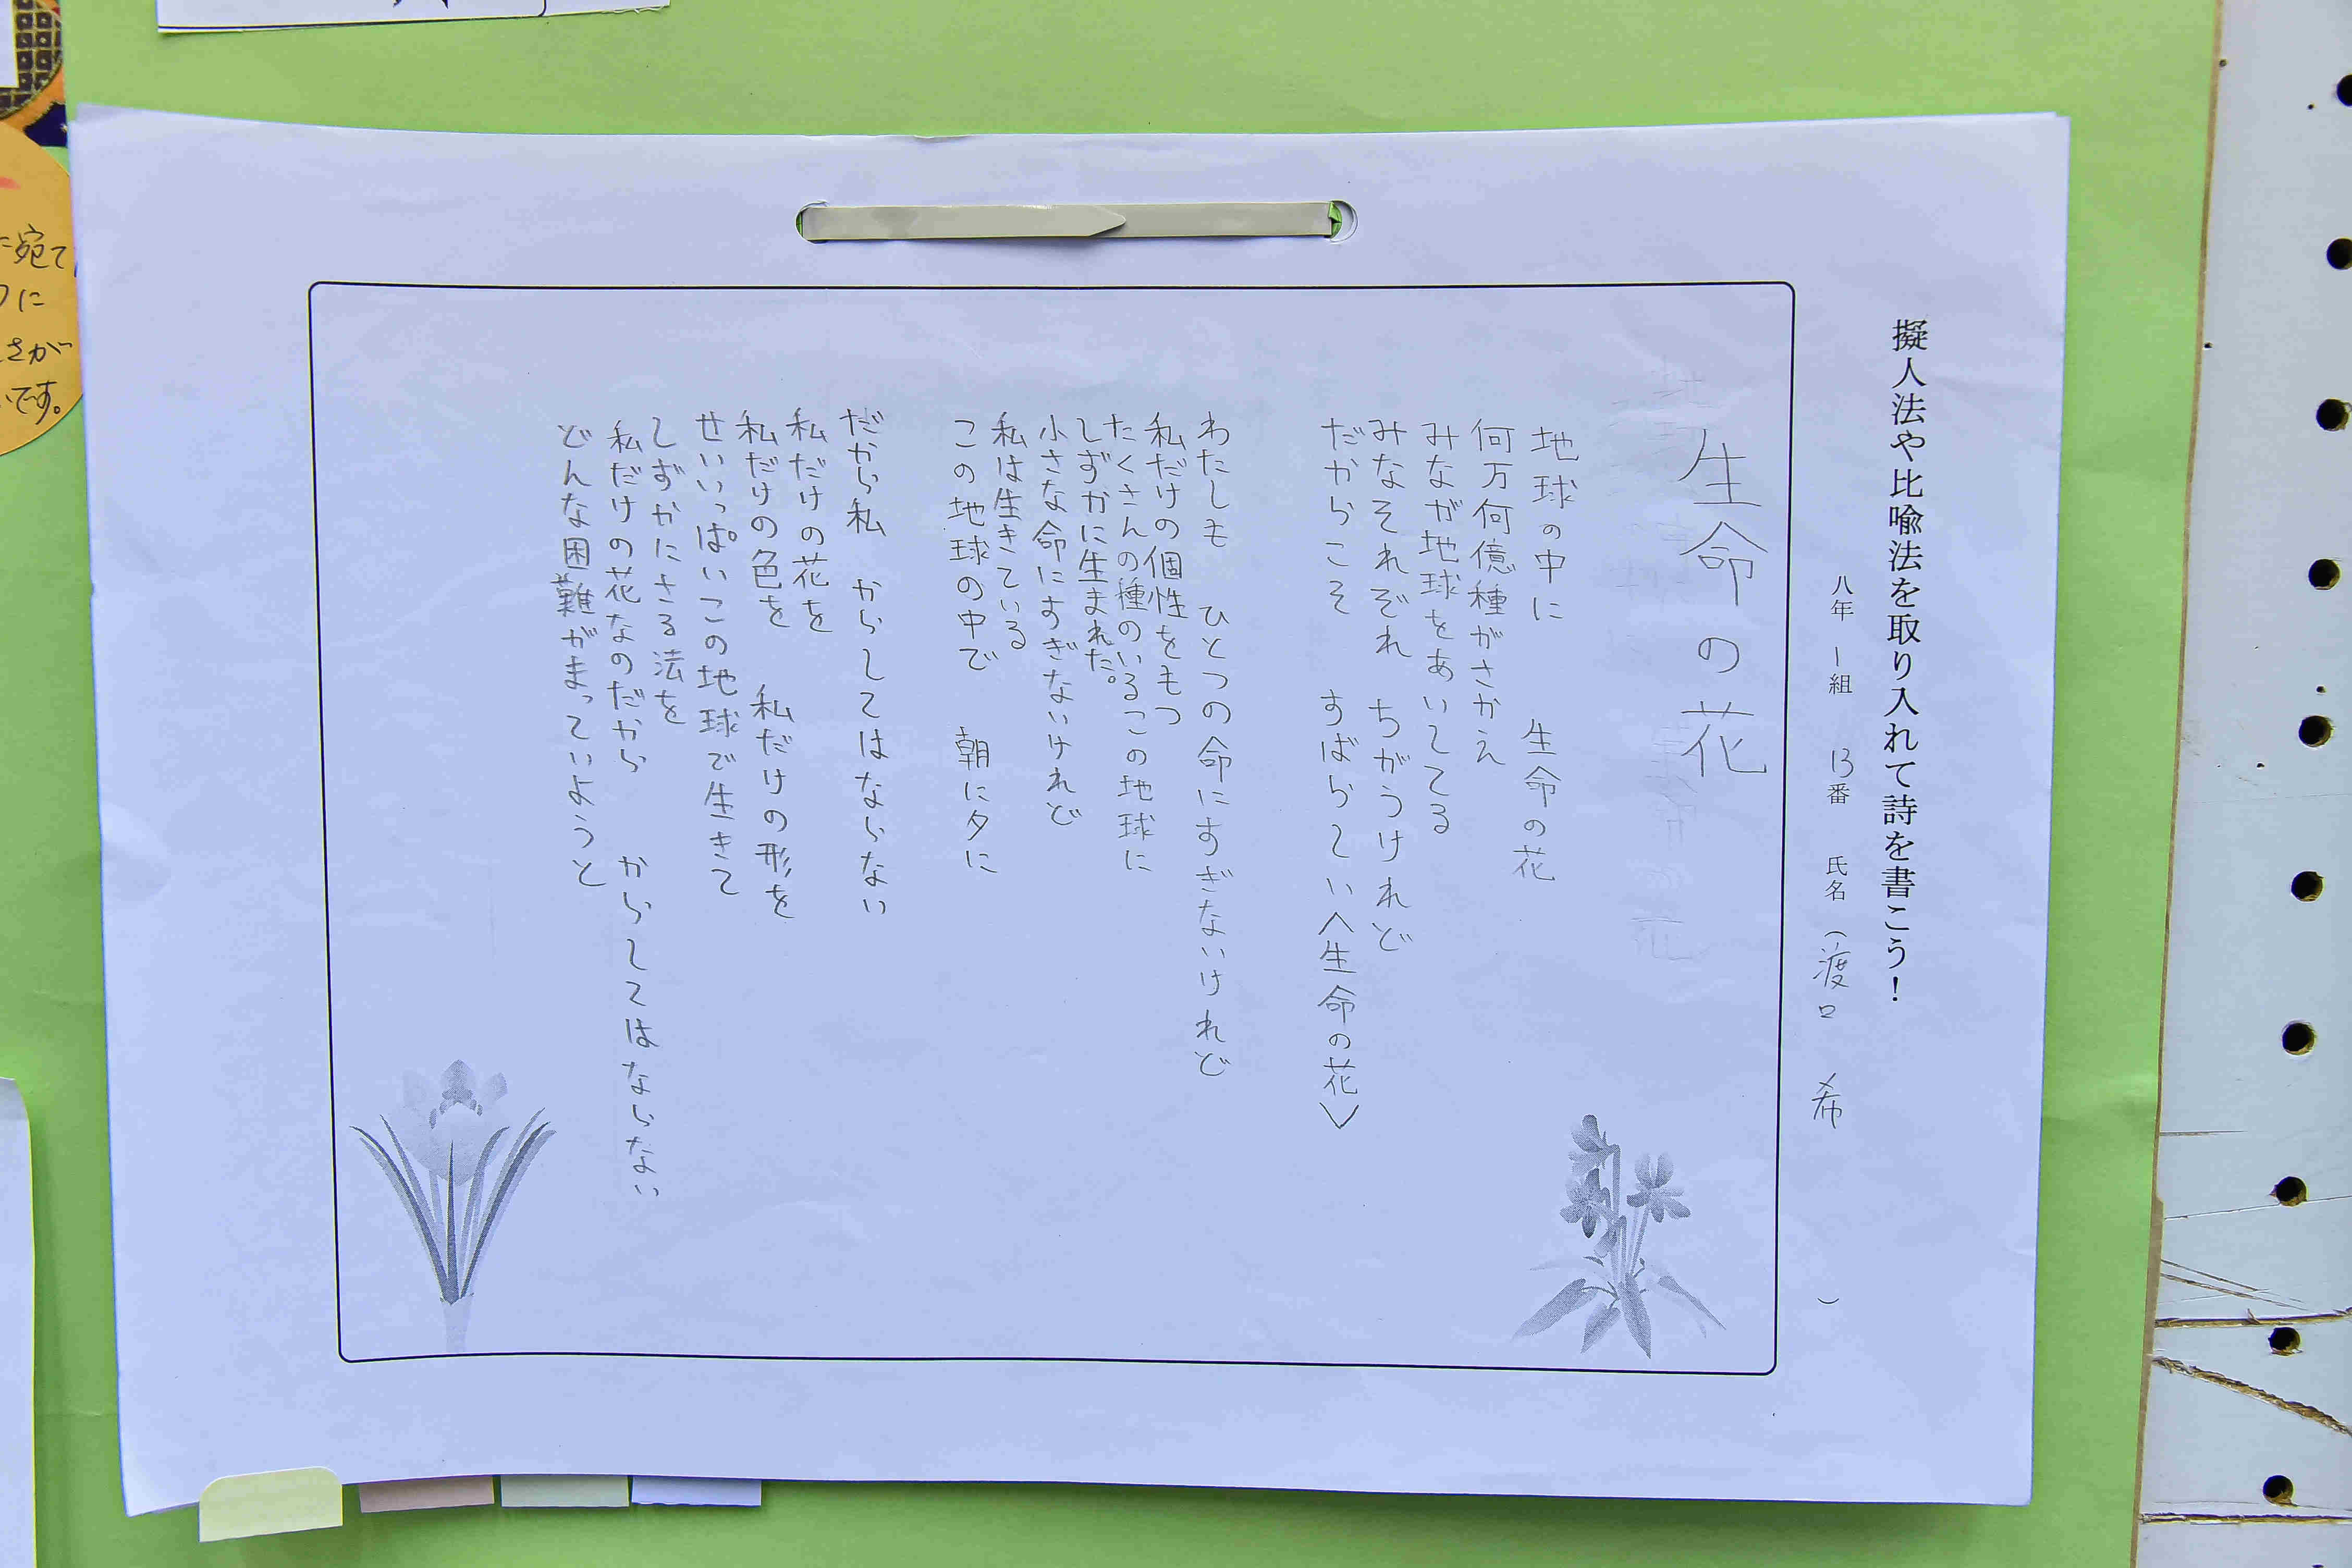 擬人法や比喩法を取り入れて詩を書こう！
八年 1組 13番 氏名（渡口 希）
生命の花
地球の中に 生命の花
何万何億種がさかえ
みなが地球をあいしてる
みなそれぞれ ちがうけれど
だからこそ すばらしい＜生命の花＞
わたしも ひとつの命にすぎないけれど
私だけの個性をもつ
たくさんの種のいるこの地球に
しずかに生まれた。
小さな命にすぎないけれど
私は生きている
この地球の中で 朝に夕に
だから私 からしてはならない
私だけの花を
私だけの色を 私だけの形を
せいいっぱいこの地球で生きて
しずかにさる法を
私だけの花なのだから からしてはならない
どんな困難がまっていようと
に宛て
に
さが
いです。